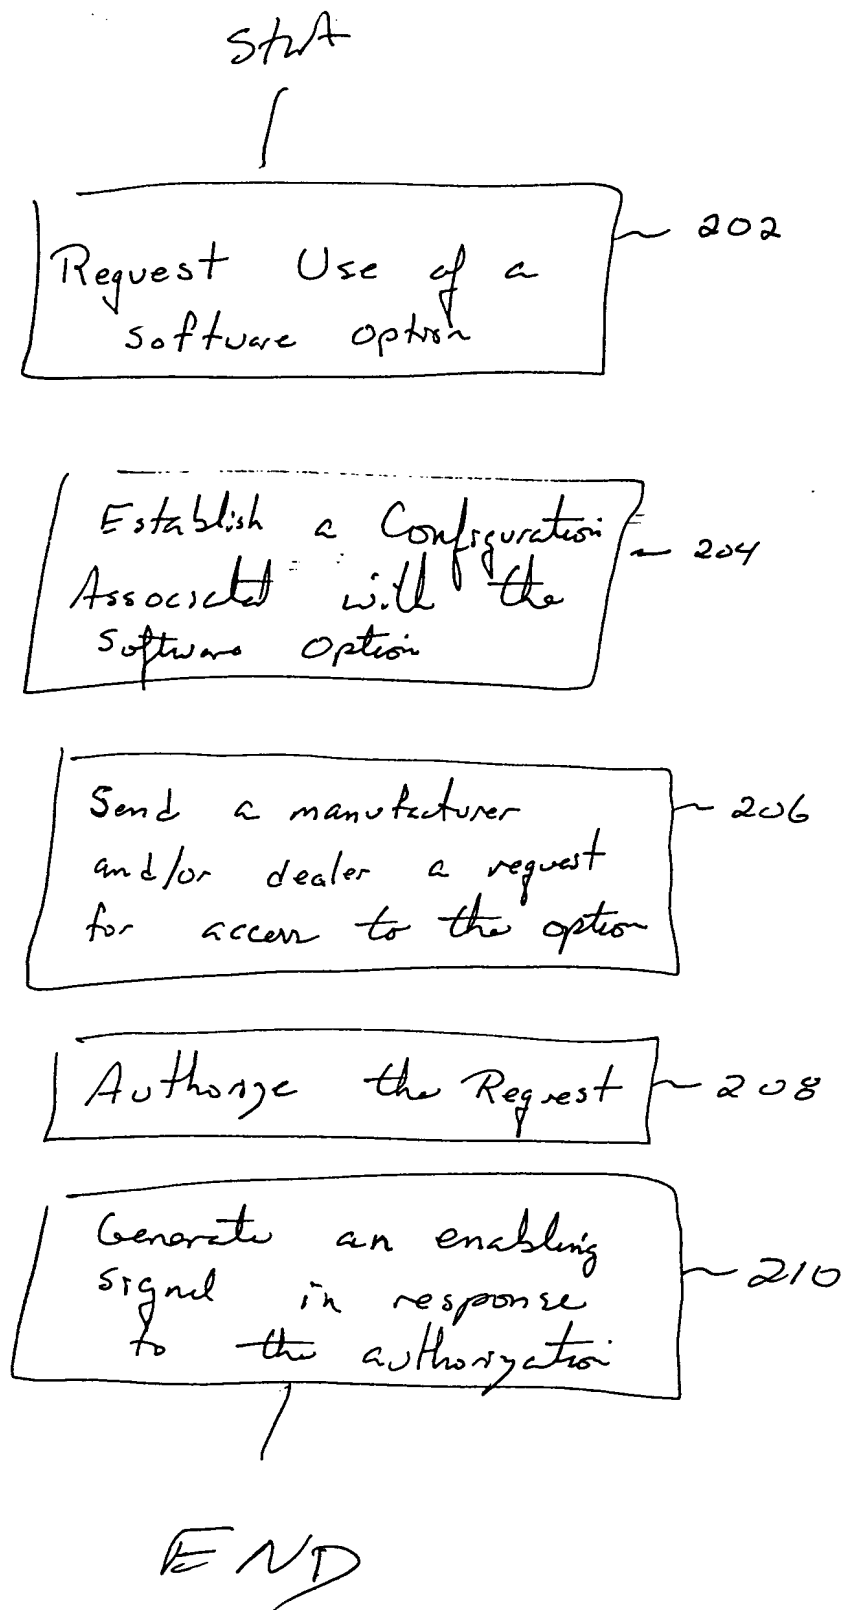 Start
Request Use of a
software option
202
Establish a Configuration
Associated with the
Software Option
204
Send a manufacturer
and/or dealer a request
for access to the option
206
Authorize the Request
208
Generate an enabling
signal in response
to the authorization
210
END